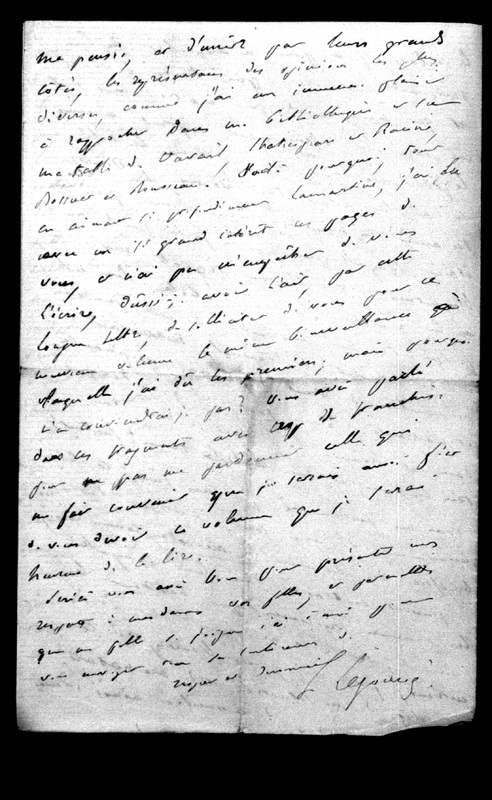 ma pensée, et d'unir par leurs grands
côtés, les représentans des opinions les plus
diverses, comme j'ai un immense plaisir
à rapprocher dans ma bibliothèque et sur
ma table de travail, Shakespeare et Racine,
Bossuet et Rousseau. Voilà pourquoi; tout
en aimant si profondément Lamartine, j'ai lu
avec un si grand intérêt ces pages de
vous, et n'ai pu m'empêcher de vous
l'écrire, dussé-je avoir l'air, par cette
longue lettre, de solliciter de vous pour ce
nouveau volume la même bienveillance à
laquelle j'ai dû les premiers; mais pourquoi
n'en conviendrai-je pas? vous avez parlé
dans ces fragments avec trop de franchise,
pour ne pas me pardonner celle qui
me fait convenir que je serais aussi fier
de vous devoir ce volume que je serai
heureux de le lire.
Serez vous assez bon pour présenter mes
respects à mesdames vos filles, et permettez
que ma fille se joigne ici à moi pour
vous envoyer nos sentiments de
respect et
E Legouvé